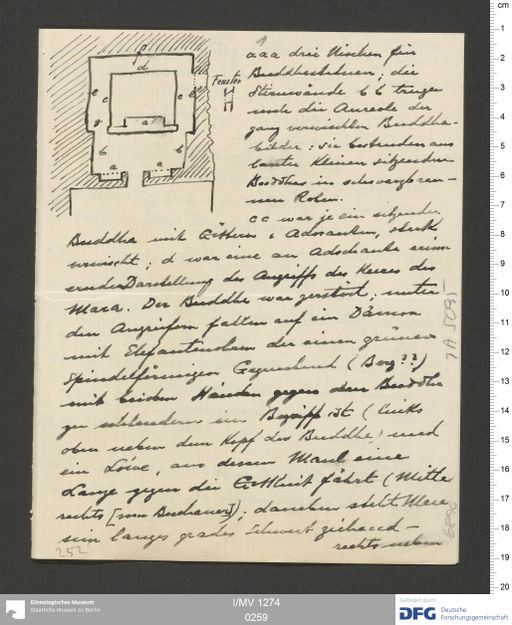 1
aaa drei Nischen für
Buddhastatuen; die
Stirnwände b b trugen
noch die Aureole der
ganz verwischten Buddha-
bilder: sie bestanden aus
lauter kleinen sitzenden
Buddhas in schwarzbrau-
nen Roben.
cc war je ein sitzender
Buddha mit Göttern u. Adoranten, stark
verwischt; d war eine an Adschanta erinn-
ernde Darstellung des Angriffs des Heeres des
Mara. Der Buddha war zerstört; unter
den Angreifern fallen auf ein Dämon
mit Elefantenohren der einen grünen
Spindelförmigen Gegenstand (Berg??)
mit beiden Händen gegen den Buddha
zu schleudern im Begriff ist (links
oben neben dem Kopf des Buddha) und
ein Löwe, aus dessen Maul eine
Lanze gegen die Gottheit fährt (Mitte
rechts [vom Beschauer]); daneben steht Mara
sein langes grades Schwert ziehend –
rechts neben
f
d
e
c
c
e
b
g
a
b
b
a
a
Fenster
TA 5095
6896
252
cm
1
2
3
4
5
6
7
8
9
10
11
12
13
14
15
16
17
18
19
20
Ethnologisches Museum
Staatliche Museen zu Berlin
I/MV 1274
0259
Gefördert durch
DFG Deutsche
Forschungsgemeinschaft